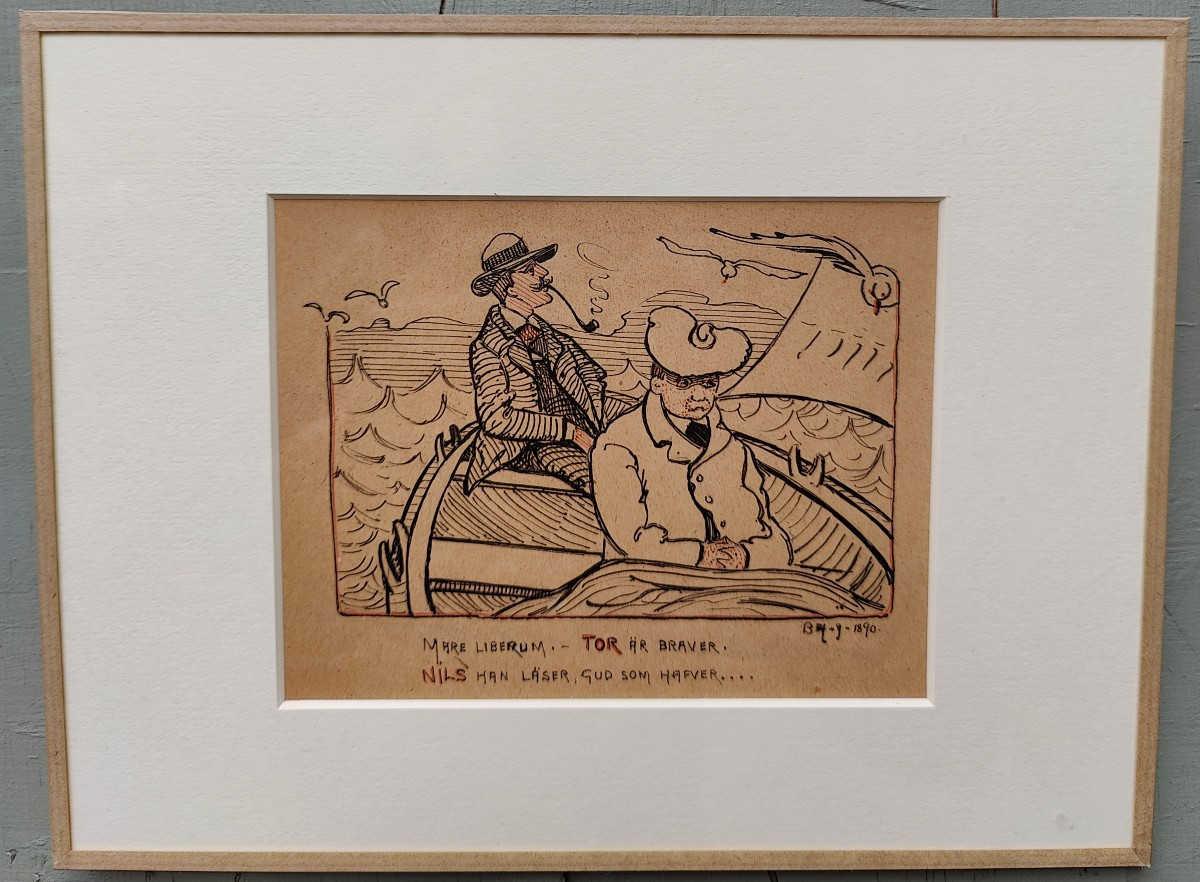 B M - 9 - 1890.
MARE LIBERUM. – TOR ÄR BRAVER.
NILS HAN LÄSER, GUD SOM HAFVER....